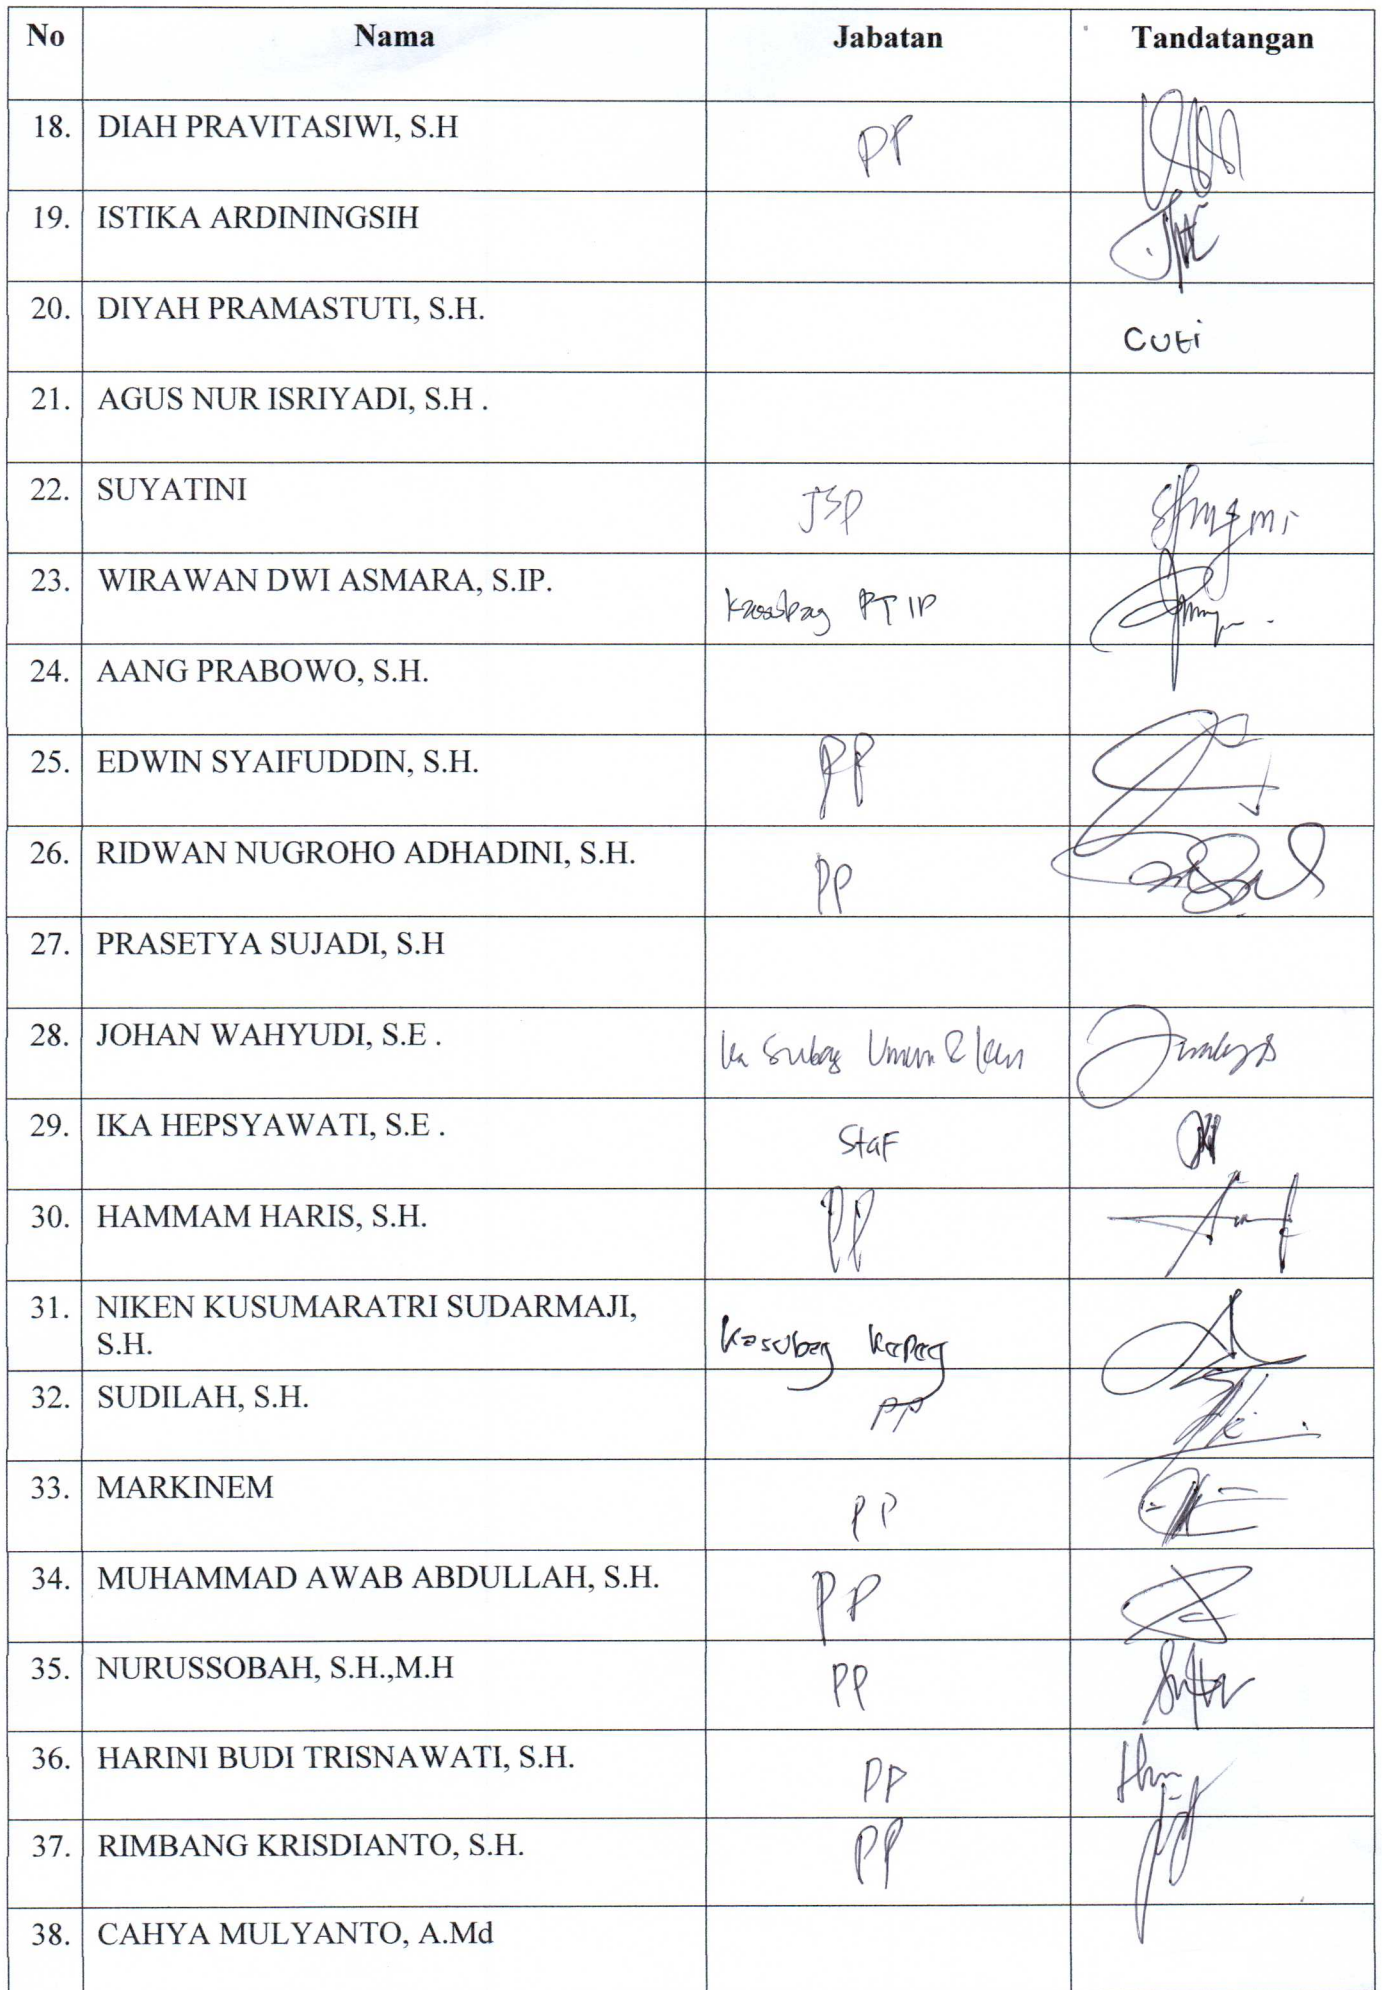 No Nama Jabatan Tandatangan
18. DIAH PRAVITASIWI, S.H PP
19. ISTIKA ARDININGSIH
20. DIYAH PRAMASTUTI, S.H. Cuti
21. AGUS NUR ISRIYADI, S.H .
22. SUYATINI JSP
23. WIRAWAN DWI ASMARA, S.IP. Kasubbag PTIP
24. AANG PRABOWO, S.H.
25. EDWIN SYAIFUDDIN, S.H. PP
26. RIDWAN NUGROHO ADHADINI, S.H. PP
27. PRASETYA SUJADI, S.H
28. JOHAN WAHYUDI, S.E . Ka Subag Umum & Keu
29. IKA HEPSYAWATI, S.E . Staf
30. HAMMAM HARIS, S.H. PP
31. NIKEN KUSUMARATRI SUDARMAJI,
S.H. Kasubag Kepeg
32. SUDILAH, S.H. PP
33. MARKINEM PP
34. MUHAMMAD AWAB ABDULLAH, S.H. PP
35. NURUSSOBAH, S.H.,M.H PP
36. HARINI BUDI TRISNAWATI, S.H. PP
37. RIMBANG KRISDIANTO, S.H. PP
38. CAHYA MULYANTO, A.Md